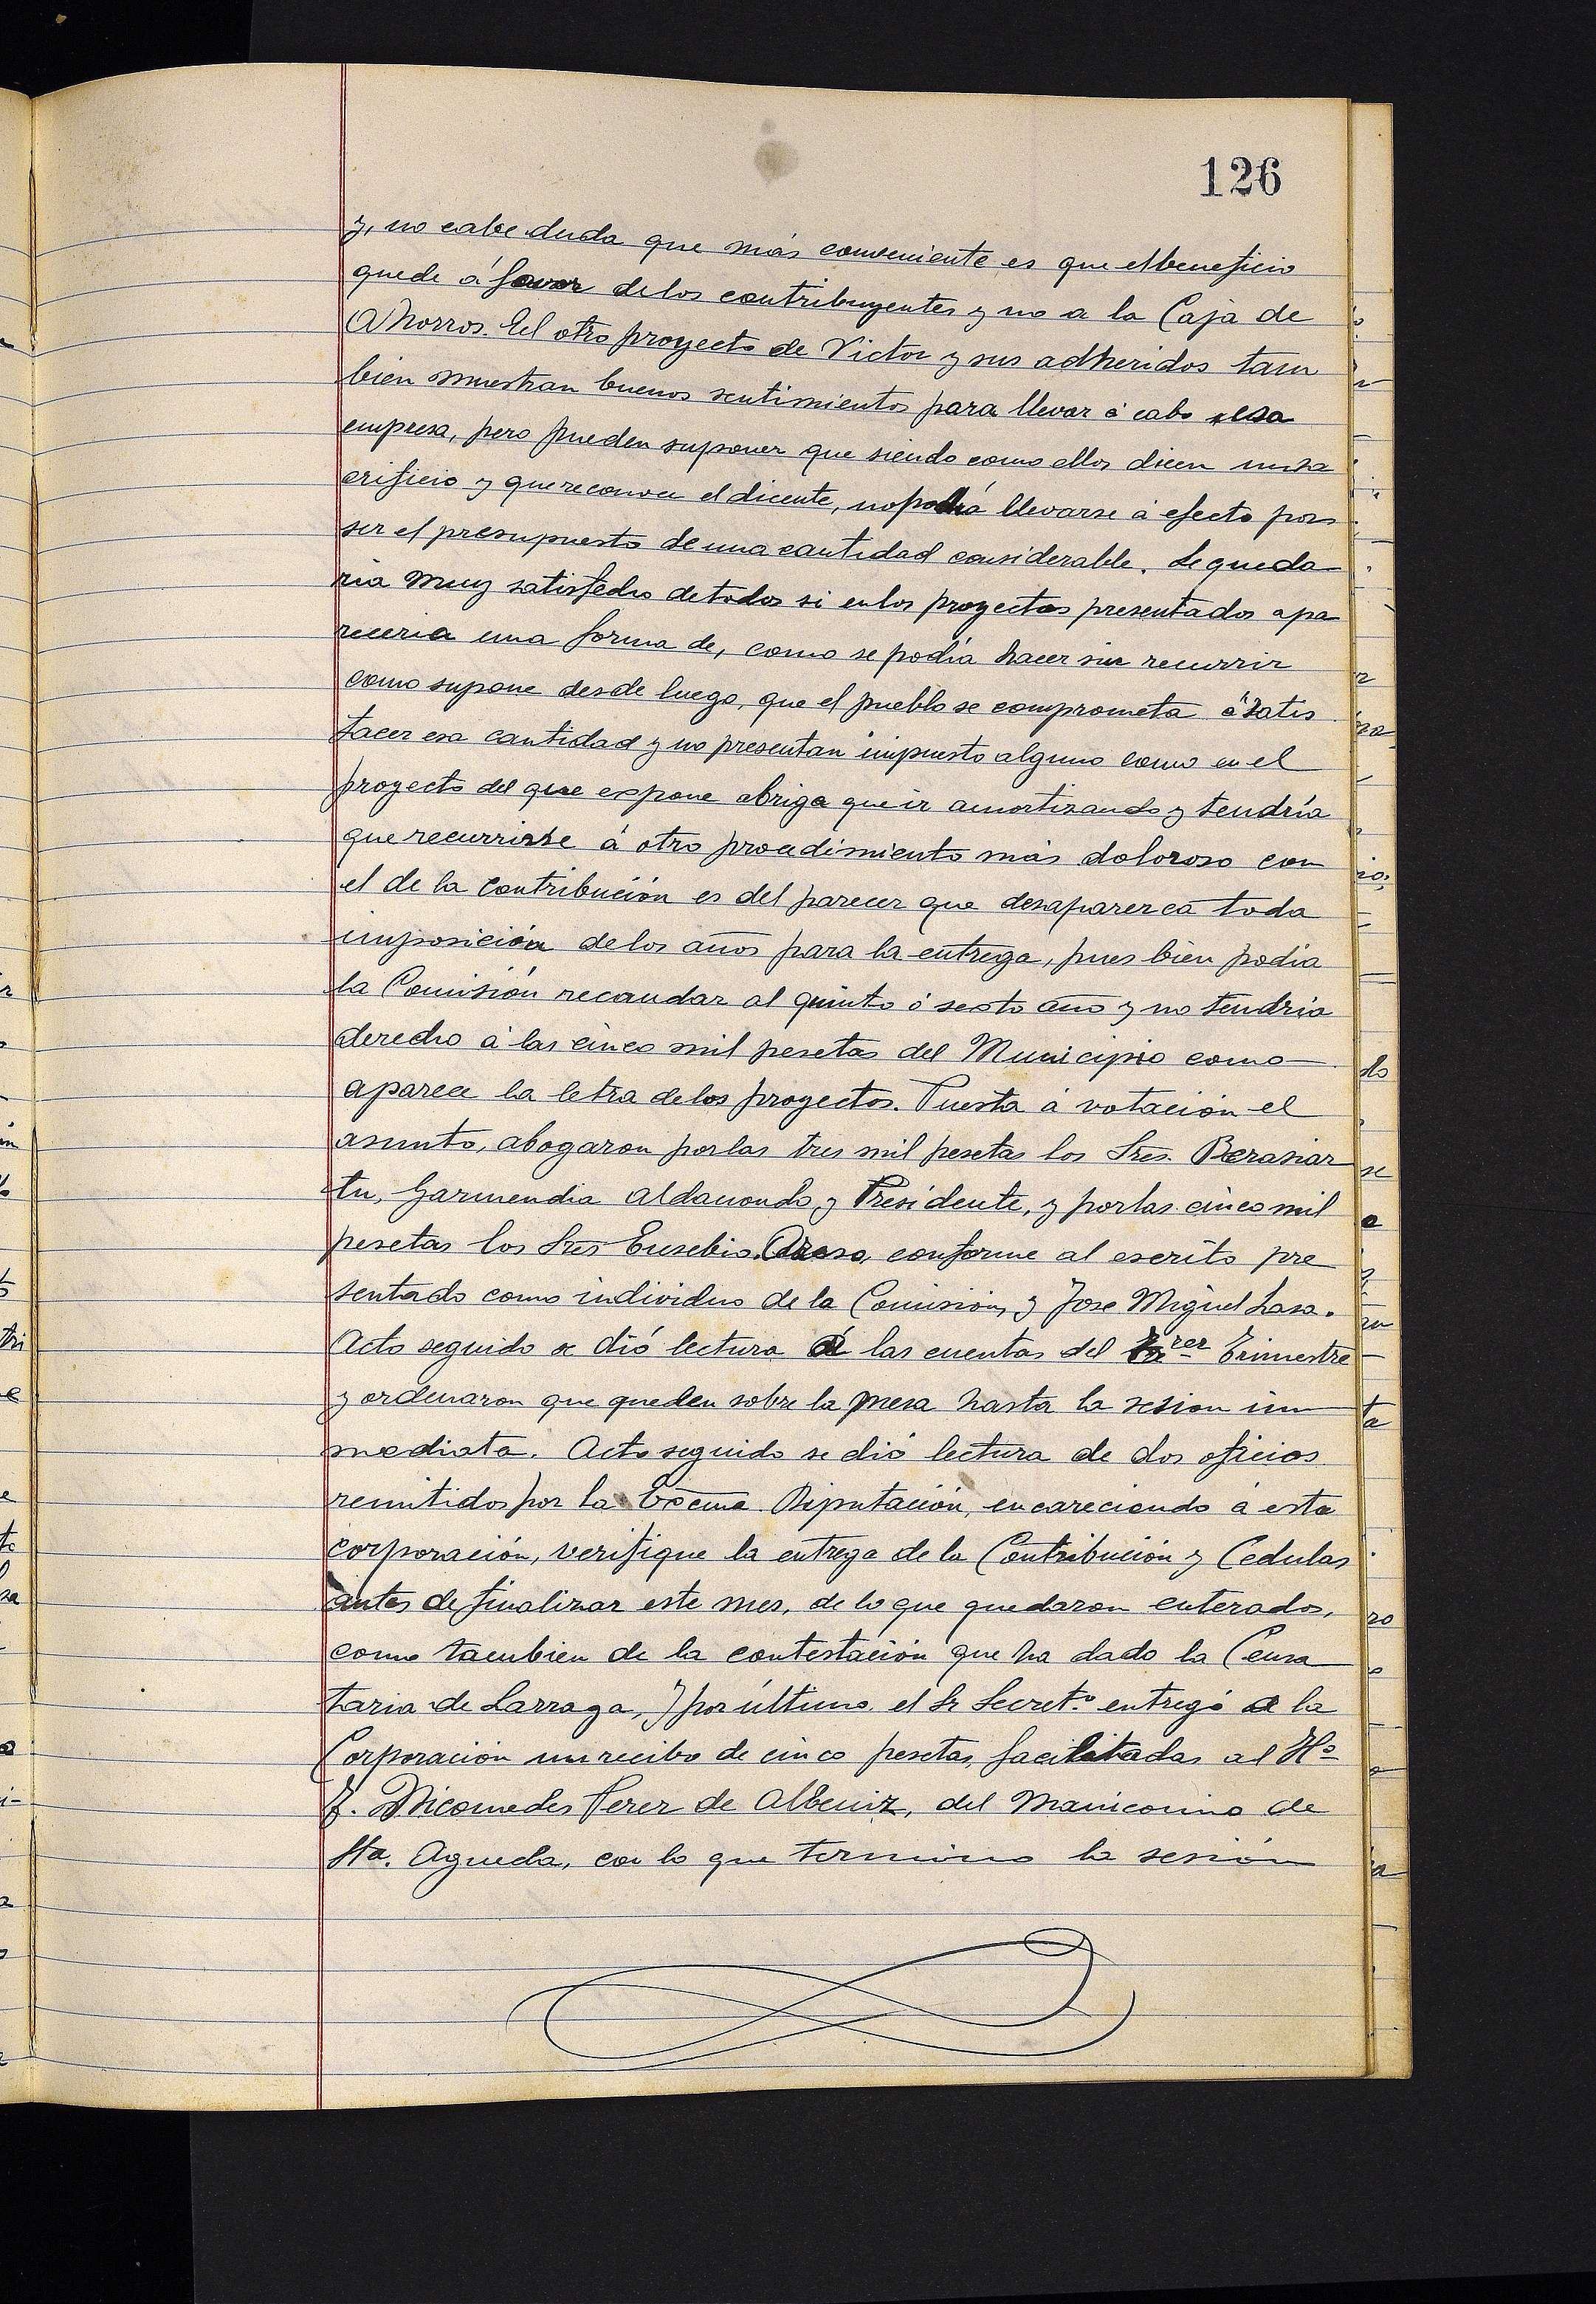 126
y, no cabe duda que más conveniente es que el beneficio
quede á favor de los contribuyentes y no a la Caja de
Ahorros. El otro proyecto de Victor y sus adheridos tam
bien muestran buenos sentimientos para llevar á cabo esa
empresa, pero pueden suponer que siendo como ellos dicen un sa
crificio y que reconoce el dicente, no podrá llevarse á efecto por
ser el presupuesto de una cantidad considerable. Se queda
ria muy satisfecho de todos si en los proyectos presentados apa
receria una forma de, como se podia hacer sin recurrir
como supone desde luego, que el pueblo se comprometa á satis
facer esa cantidad y no presentan impuesto alguno como en el
proyecto del que expone abriga que ir amortizando y tendría
que recurrirse á otro procedimiento más doloroso con
el de la contribución es del parecer que desaparezca toda
imposición de los años para la entrega, pues bien podia
la Comisión recaudar al quinto ó sexto año y no tendria
derecho á las cinco mil pesetas del Municipio como
aparece la letra de los proyectos. Puesta á votación el
asunto, abogaron por las tres mil pesetas los Sres. Berasiar
tu, Garmendia Aldanondo y Presidente, y por las cinco mil
pesetas los Sres Eusebio Oraso, conforme al escrito pre
sentado como individuo de la Comisión, y Jose Miguel Lasa.
Acto seguido se dió lectura á las cuentas del rer Trimestre
y ordenaron que queden sobre la mesa hasta la sesion inn
mediata. Acto seguido se dió lectura de dos oficios
remitidos por la Excma Diputación, encareciendo á esta
corporación, verifique la entrega de la Contribución y Cedulas
antes de finalizar este mes, de lo que quedaron enterados,
como tambien de la contestación que ha dado la Censa
taria de Larraga, y por último, el Sr Secret.º entregó a la
Corporación un recibo de cinco pesetas facilitadas al Hº
F. Nicomedes Perez de Albeniz, del Manicomio de
Sta. Agueda, con lo que termino la sesión